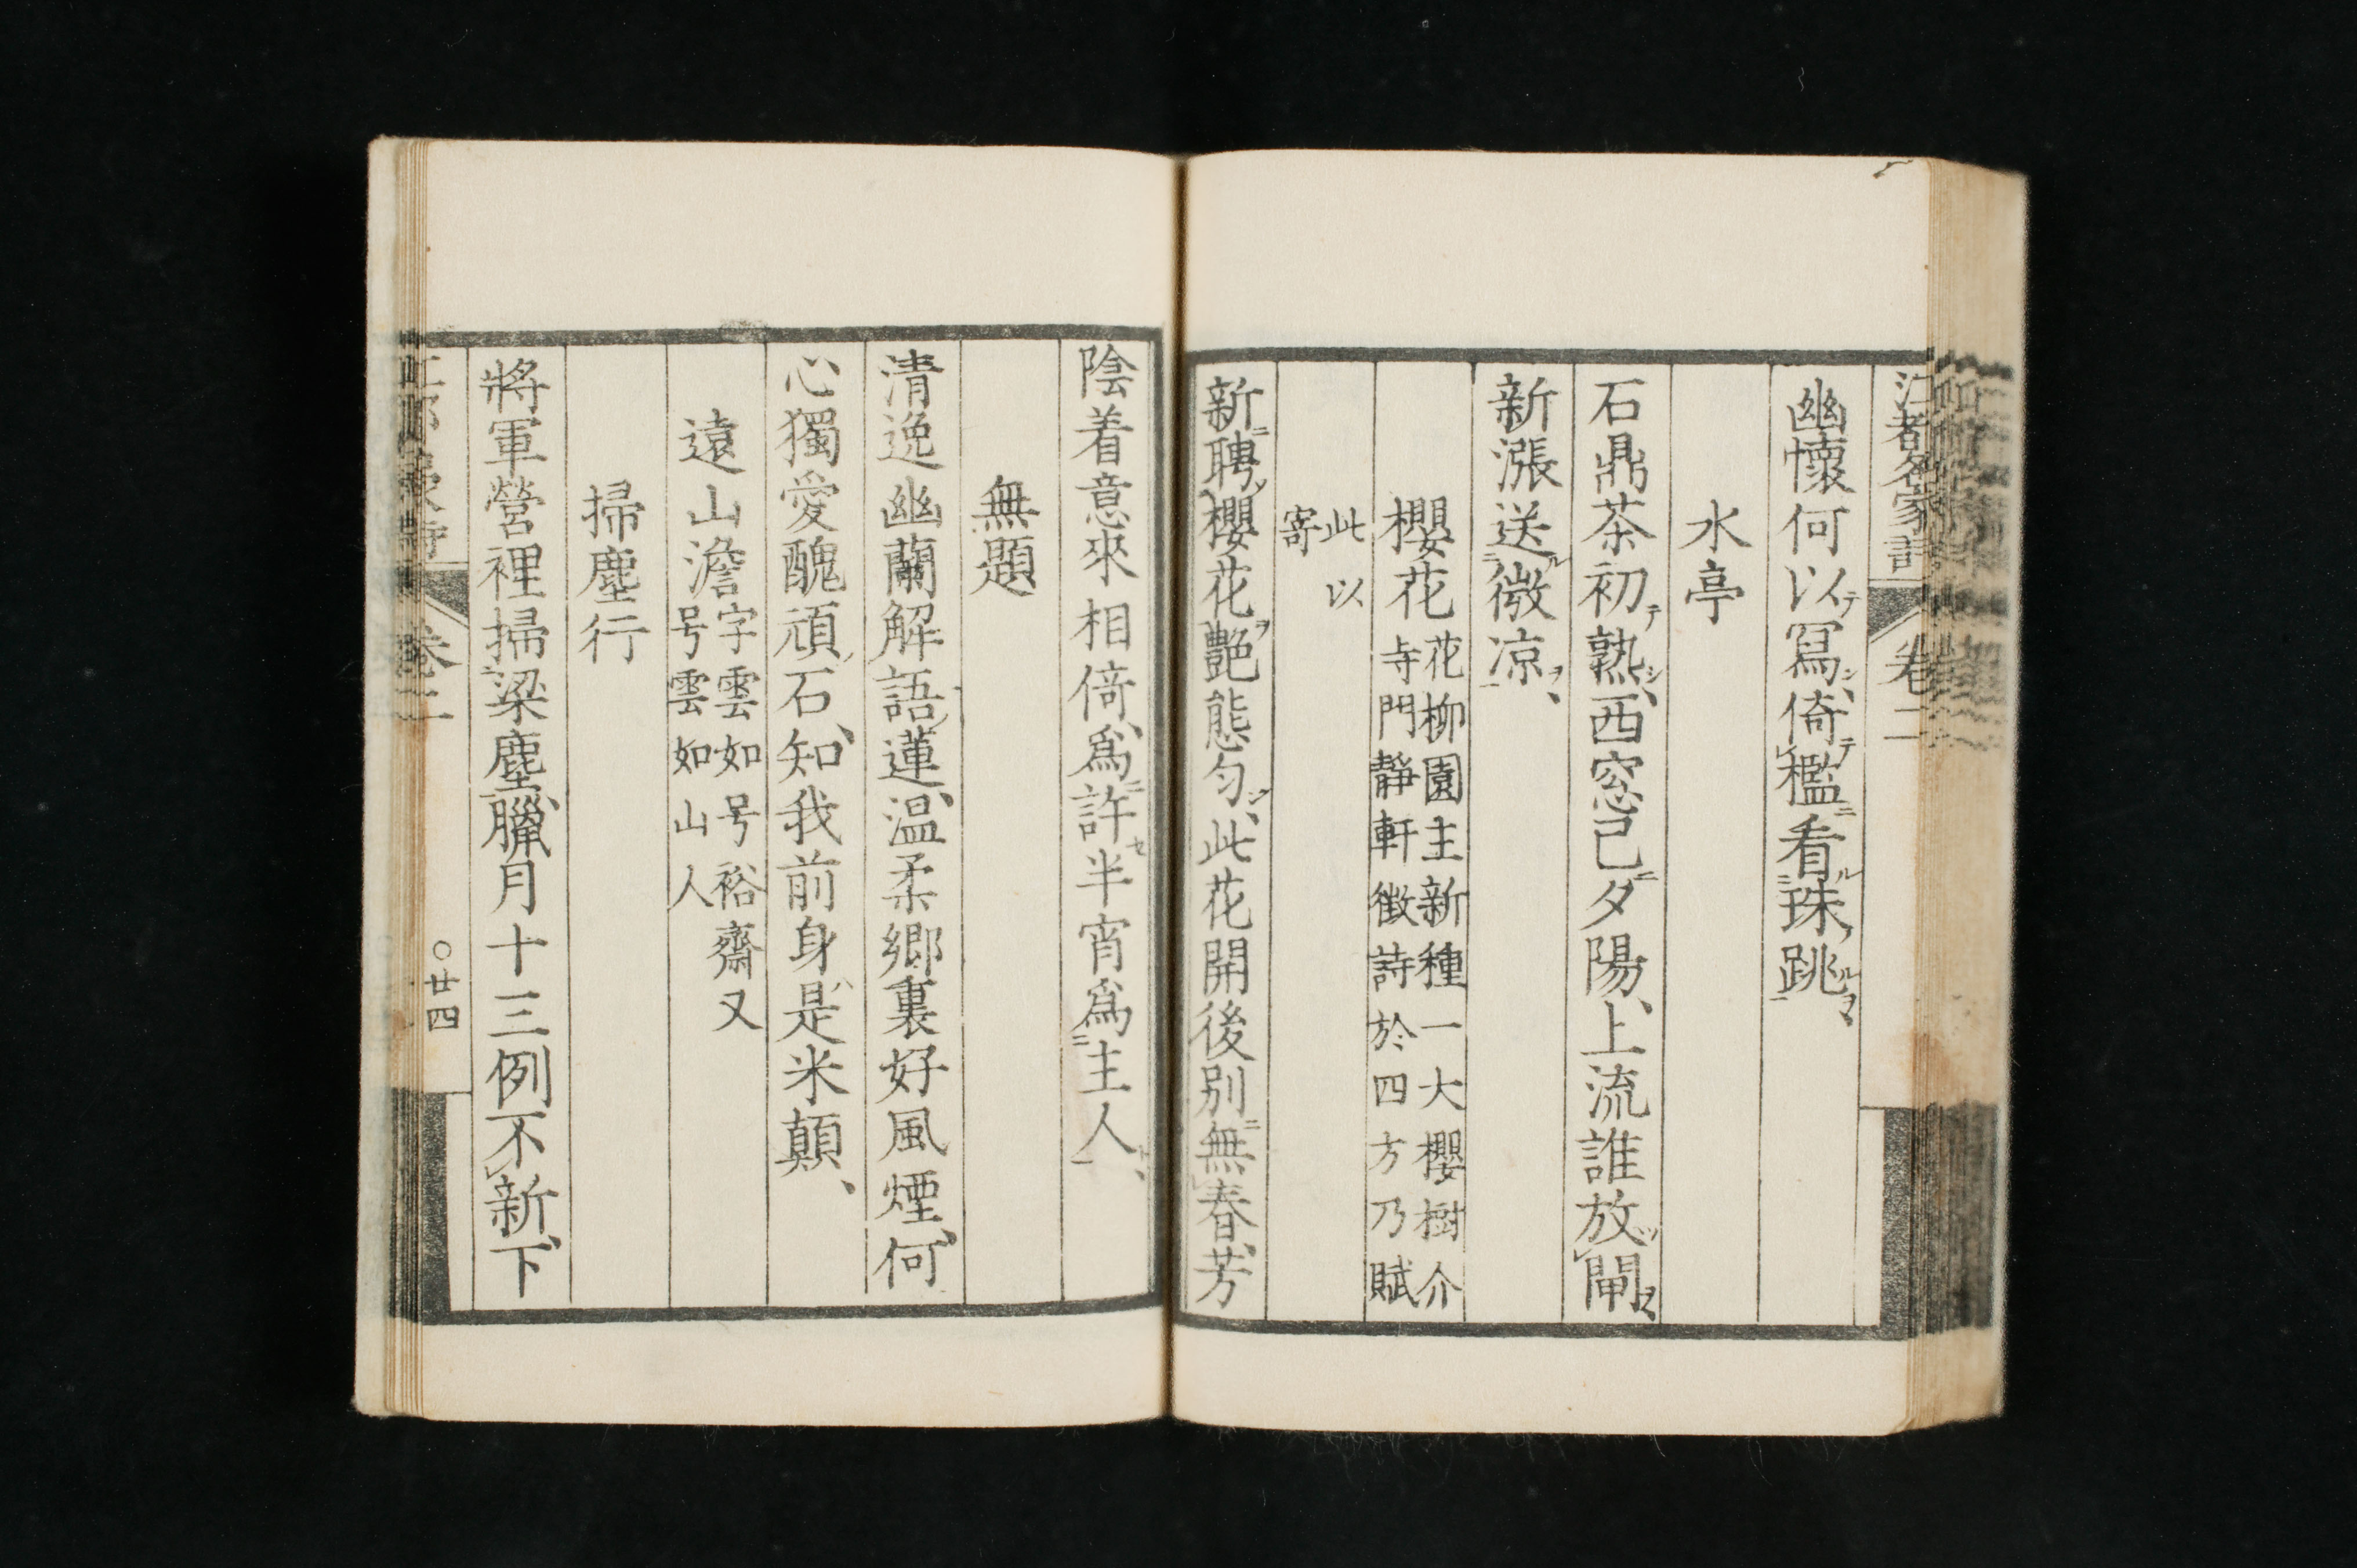 幽懷何以冩倚檻看珠跳
水亭
石鼎茶初熟西窓已夕陽上流誰放閘
新漲送微凉
櫻花花柳園主新種一大櫻樹介
寺門靜軒徴詩於四方乃賦
此以
寄
新聘櫻花艶態匀此花開後別無春芳
陰着意來相倚爲許半宵爲主人
無題
清逸幽蘭解語蓮温柔郷裏好風煙何
心獨愛醜頑石知我前身是米顛
遠山澹字雲如号裕齋又
号雲如山人
掃塵行
將軍營裡掃梁塵臘月十三例不新下
卷二
〇廿四